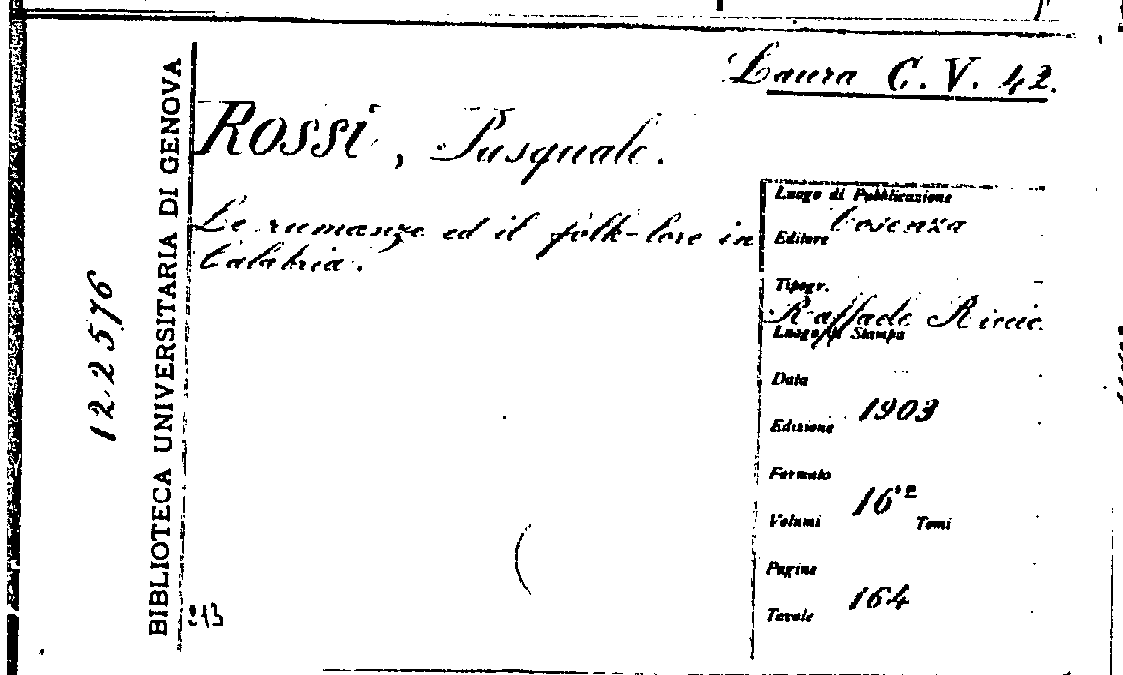 Laura C. V. 42.
ROSSI, Pasquale.
Le rumanze ed il folk-lore in
Calabria.
Luogo di Pubblicazione
Cosenza
Editore
Tipogr.
Raffaele Riccio
Luogo di Stampa
Data
1903
Edizione
Formato
16º
Volumi Tomi
Pagine
164
Tavole
BIBLIOTECA UNIVERSITARIA DI GENOVA
122576
213